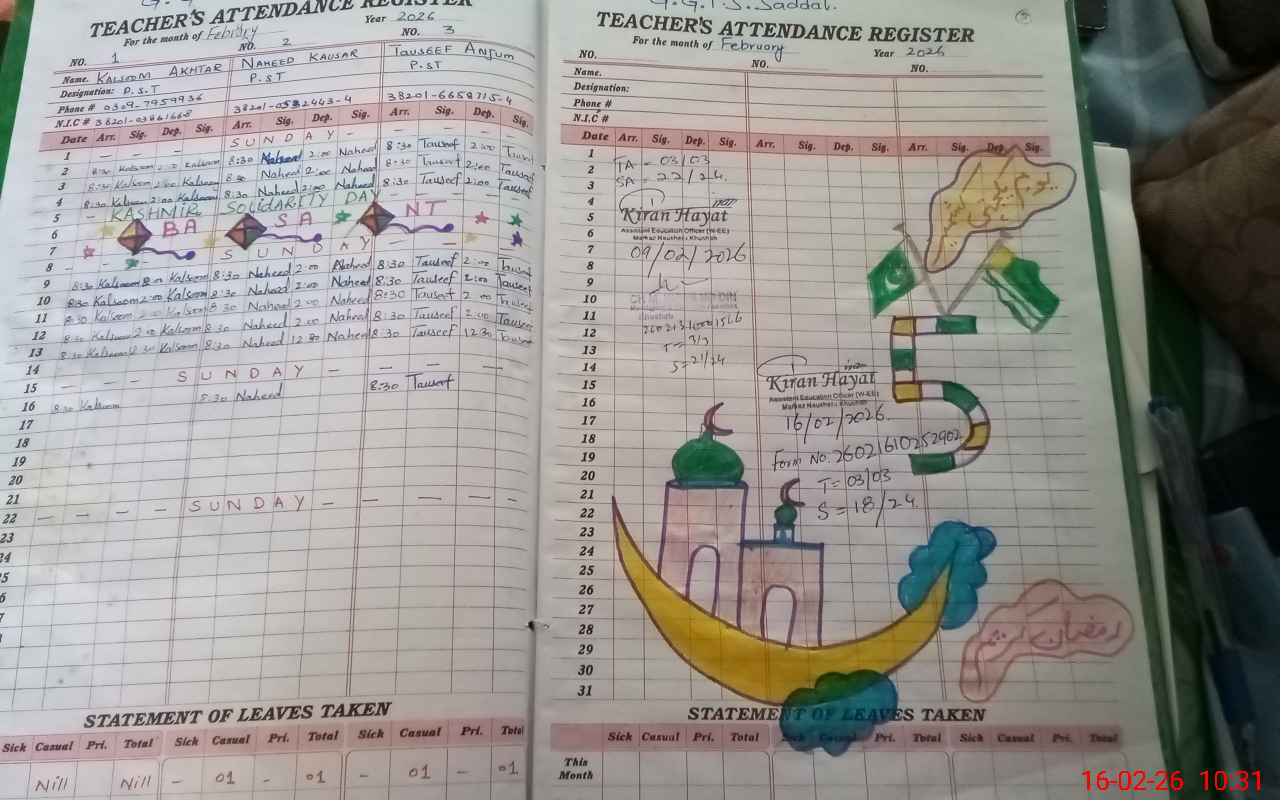 TEACHER'S ATTENDANCE REGISTER
For the month of Febrary Year 2026
NO. 1 NO. 2 NO. 3
Name. KALSOOM AKHTAR NAHEED KAUSAR TAUSEEF ANJUM
Designation: P.S.T P.S.T P.ST
Phone # 0309-7959936
N.I.C # 38201-6658715-4
Date Arr. Sig. Dep. Sig. Arr. Sig. Dep. Sig. Arr. Sig. Dep. Sig.
1 — — — — S U N D A Y — — — — —
2 8:30 Kalsoom 2:00 Kalsoom 8:30 Naheed 2:00 Naheed 8:30 Tauseef 2:00 Tauseef
3 8:30 Kalsoom 2:00 Kalsoom 8:30 Naheed 2:00 Naheed 8:30 Tauseef 2:00 Tauseef
4 8:30 Kalsoom 2:00 Kalsoom 8:30 Naheed 2:00 Naheed 8:30 Tauseef 2:00 Tauseef
5 - KASHMIR SOLIDARETY DAY
6 BA SA NT
7
8 - - S U N D A Y — — —
9 8:30 Kalsoom 2:00 Kalsoom 8:30 Naheed 2:00 Naheed 8:30 Tauseef 2:00 Tauseef
10 8:30 Kalsoom 2:00 Kalsoom 8:30 Naheed 2:00 Naheed 8:30 Tauseef 2:00 Tauseef
11 8:30 Kalsoom 2:00 Kalsoom 8:30 Naheed 2:00 Naheed 8:30 Tauseef 2:00 Tauseef
12 8:30 Kalsoom 2:00 Kalsoom 8:30 Naheed 2:00 Naheed 8:30 Tauseef 2:00 Tauseef
13 8:30 Kalsoom 12:30 Kalsoom 8:30 Naheed 12:30 Naheed 8:30 Tauseef 12:30 Tauseef
14
15 — — — S U N D A Y — — — — —
16 8:30 Kalsoom 8:30 Naheed 8:30 Tauseef
17
18
19
20
21
22 — — — — S U N D A Y — — — — —
23
24
25
STATEMENT OF LEAVES TAKEN
Sick Casual Pri. Total Sick Casual Pri. Total Sick Casual Pri. Total
Nill Nill - 01 - 01 - 01 - 01
G.G.P.S. Saddal.
TEACHER'S ATTENDANCE REGISTER
For the month of February Year 2026
NO. NO. NO.
Name.
Designation:
Phone #
N.I.C #
Date Arr. Sig. Dep. Sig. Arr. Sig. Dep. Sig. Arr. Sig. Dep. Sig.
1
2 TA = 03/03
3 SA = 22/24.
4
5 Kiran Hayat
6 Assistant Education Officer (W-EE)
Markaz Naushera, Khushab
7 09/02/2026
8
9
10
11
12
13
14 S=21/24
15 Kiran Hayat
Assistant Education Officer (W-EE)
16 Markaz Naushera, Khushab
17 16/02/2026.
18
19 Form No. 26021610252902
20 T= 03/03
21 S = 18/24
22
23
24
25
26
27
28 رمضان کریم
29
30
31
STATEMENT OF LEAVES TAKEN
Sick Casual Pri. Total Sick Casual Pri. Total Sick Casual Pri. Total
This Month
16-02-26 10:31